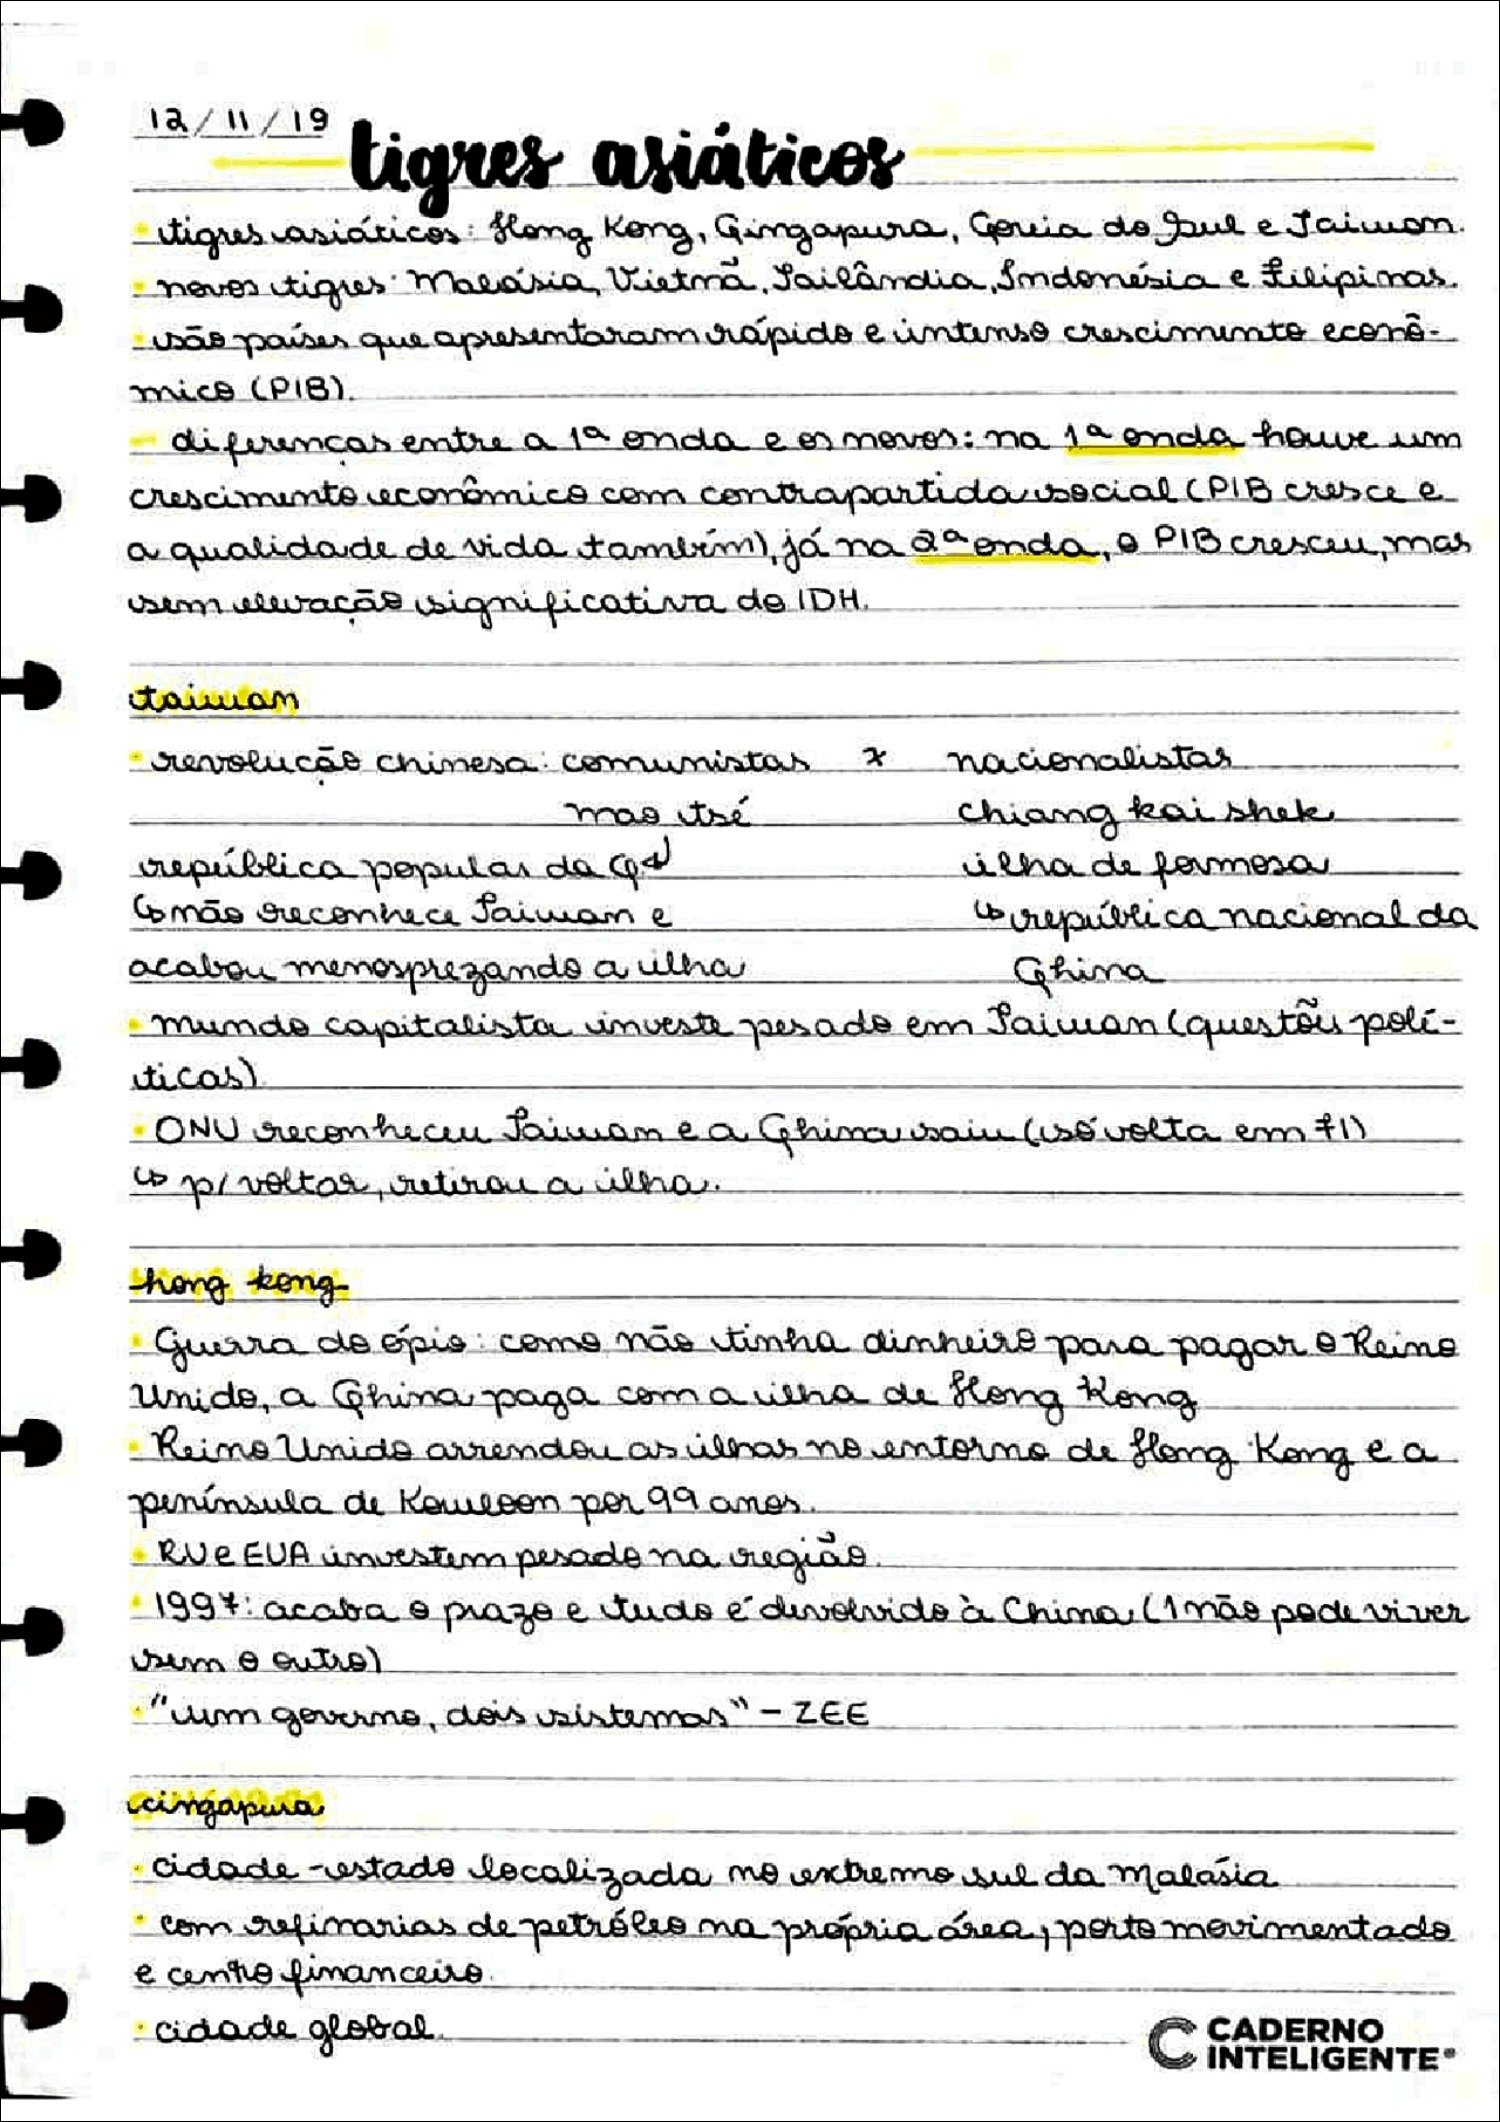 12/11/19
tigres asiáticos
• tigres asiáticos: Hong Kong, Cingapura, Coreia do Sul e Taiwan.
• novos tigres: Malásia, Vietnã, Tailândia, Indonésia e Filipinas.
• são países que apresentaram rápido e intenso crescimento econô-
mico (PIB).
- diferenças entre a 1ª onda e os novos: na 1ª onda houve um
crescimento econômico com contrapartida social (PIB cresce e
a qualidade de vida também), já na 2ª onda, o PIB cresceu, mas
sem elevação significativa do IDH.
taiwan
• revolução chinesa: comunistas x nacionalistas
mao tsé chiang kai shek
república popular da C. ↲ ilha de formosa
↳ não reconhece Taiwan e ↳ república nacional da
acabou menosprezando a ilha China
• mundo capitalista investe pesado em Taiwan (questões polí-
ticas)
• ONU reconheceu Taiwan e a China saiu (só volta em 71)
↳ p/ voltar, retirou a ilha.
hong kong
• Guerra do ópio: como não tinha dinheiro para pagar o Reino
Unido, a China paga com a ilha de Hong Kong
• Reino Unido arrendou as ilhas no entorno de Hong Kong e a
península de Kowloon por 99 anos.
• RU e EUA investem pesado na região.
• 1997: acaba o prazo e tudo é devolvido à China (1 não pode viver
sem o outro)
• "um governo, dois sistemas" - ZEE
cingapura
• cidade-estado localizada no extremo sul da Malásia
• com refinarias de petróleo na própria área, porto movimentado
e centro financeiro.
• cidade global.
CADERNO
INTELIGENTE